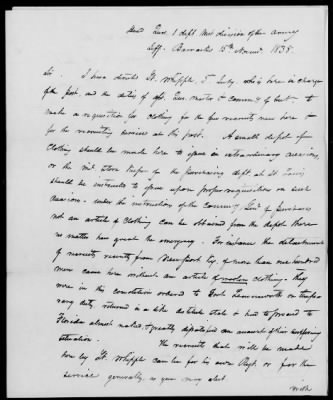 Head Qrs. 1 dept West division of the army
Jeff. Barracks 15th Novem. 1838.
Sir. I have directed Lt. Whipple 5th Infy who is here in charge
of the post, and the duties of Qr. Master & Commy of Subt. to
make a requisition for clothing for the few recruits now here &
for the recruiting service at this post. A small depot of
Clothing should be made here to issue on extraordinary occasions,
or the Mil. Store Keeper of the Purchasing dept. at St Louis
should be instructed to issue upon proper requisitions on such
occasions. under the instructions of the Commissy Genl of purchases
not an article of clothing can be obtained from the depot there
no matter how great the emergency. For instance the detachment
of recruits recently from Newport Ky. of more than one hundred
men came here without an article of woolen clothing. They
were in this condition ordered to Fort Leavenworth on tempo-
rary duty, returned in a like destitute state & had to proceed to
Florida almost naked, & greatly dissatisfied on account of their suffering
situation. The recruits that will be made
here by Lt. Whipple can be for his own Regt. or for the
service generally as you may elect.
with